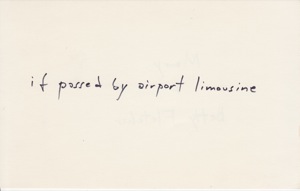 if passed by airport limousine